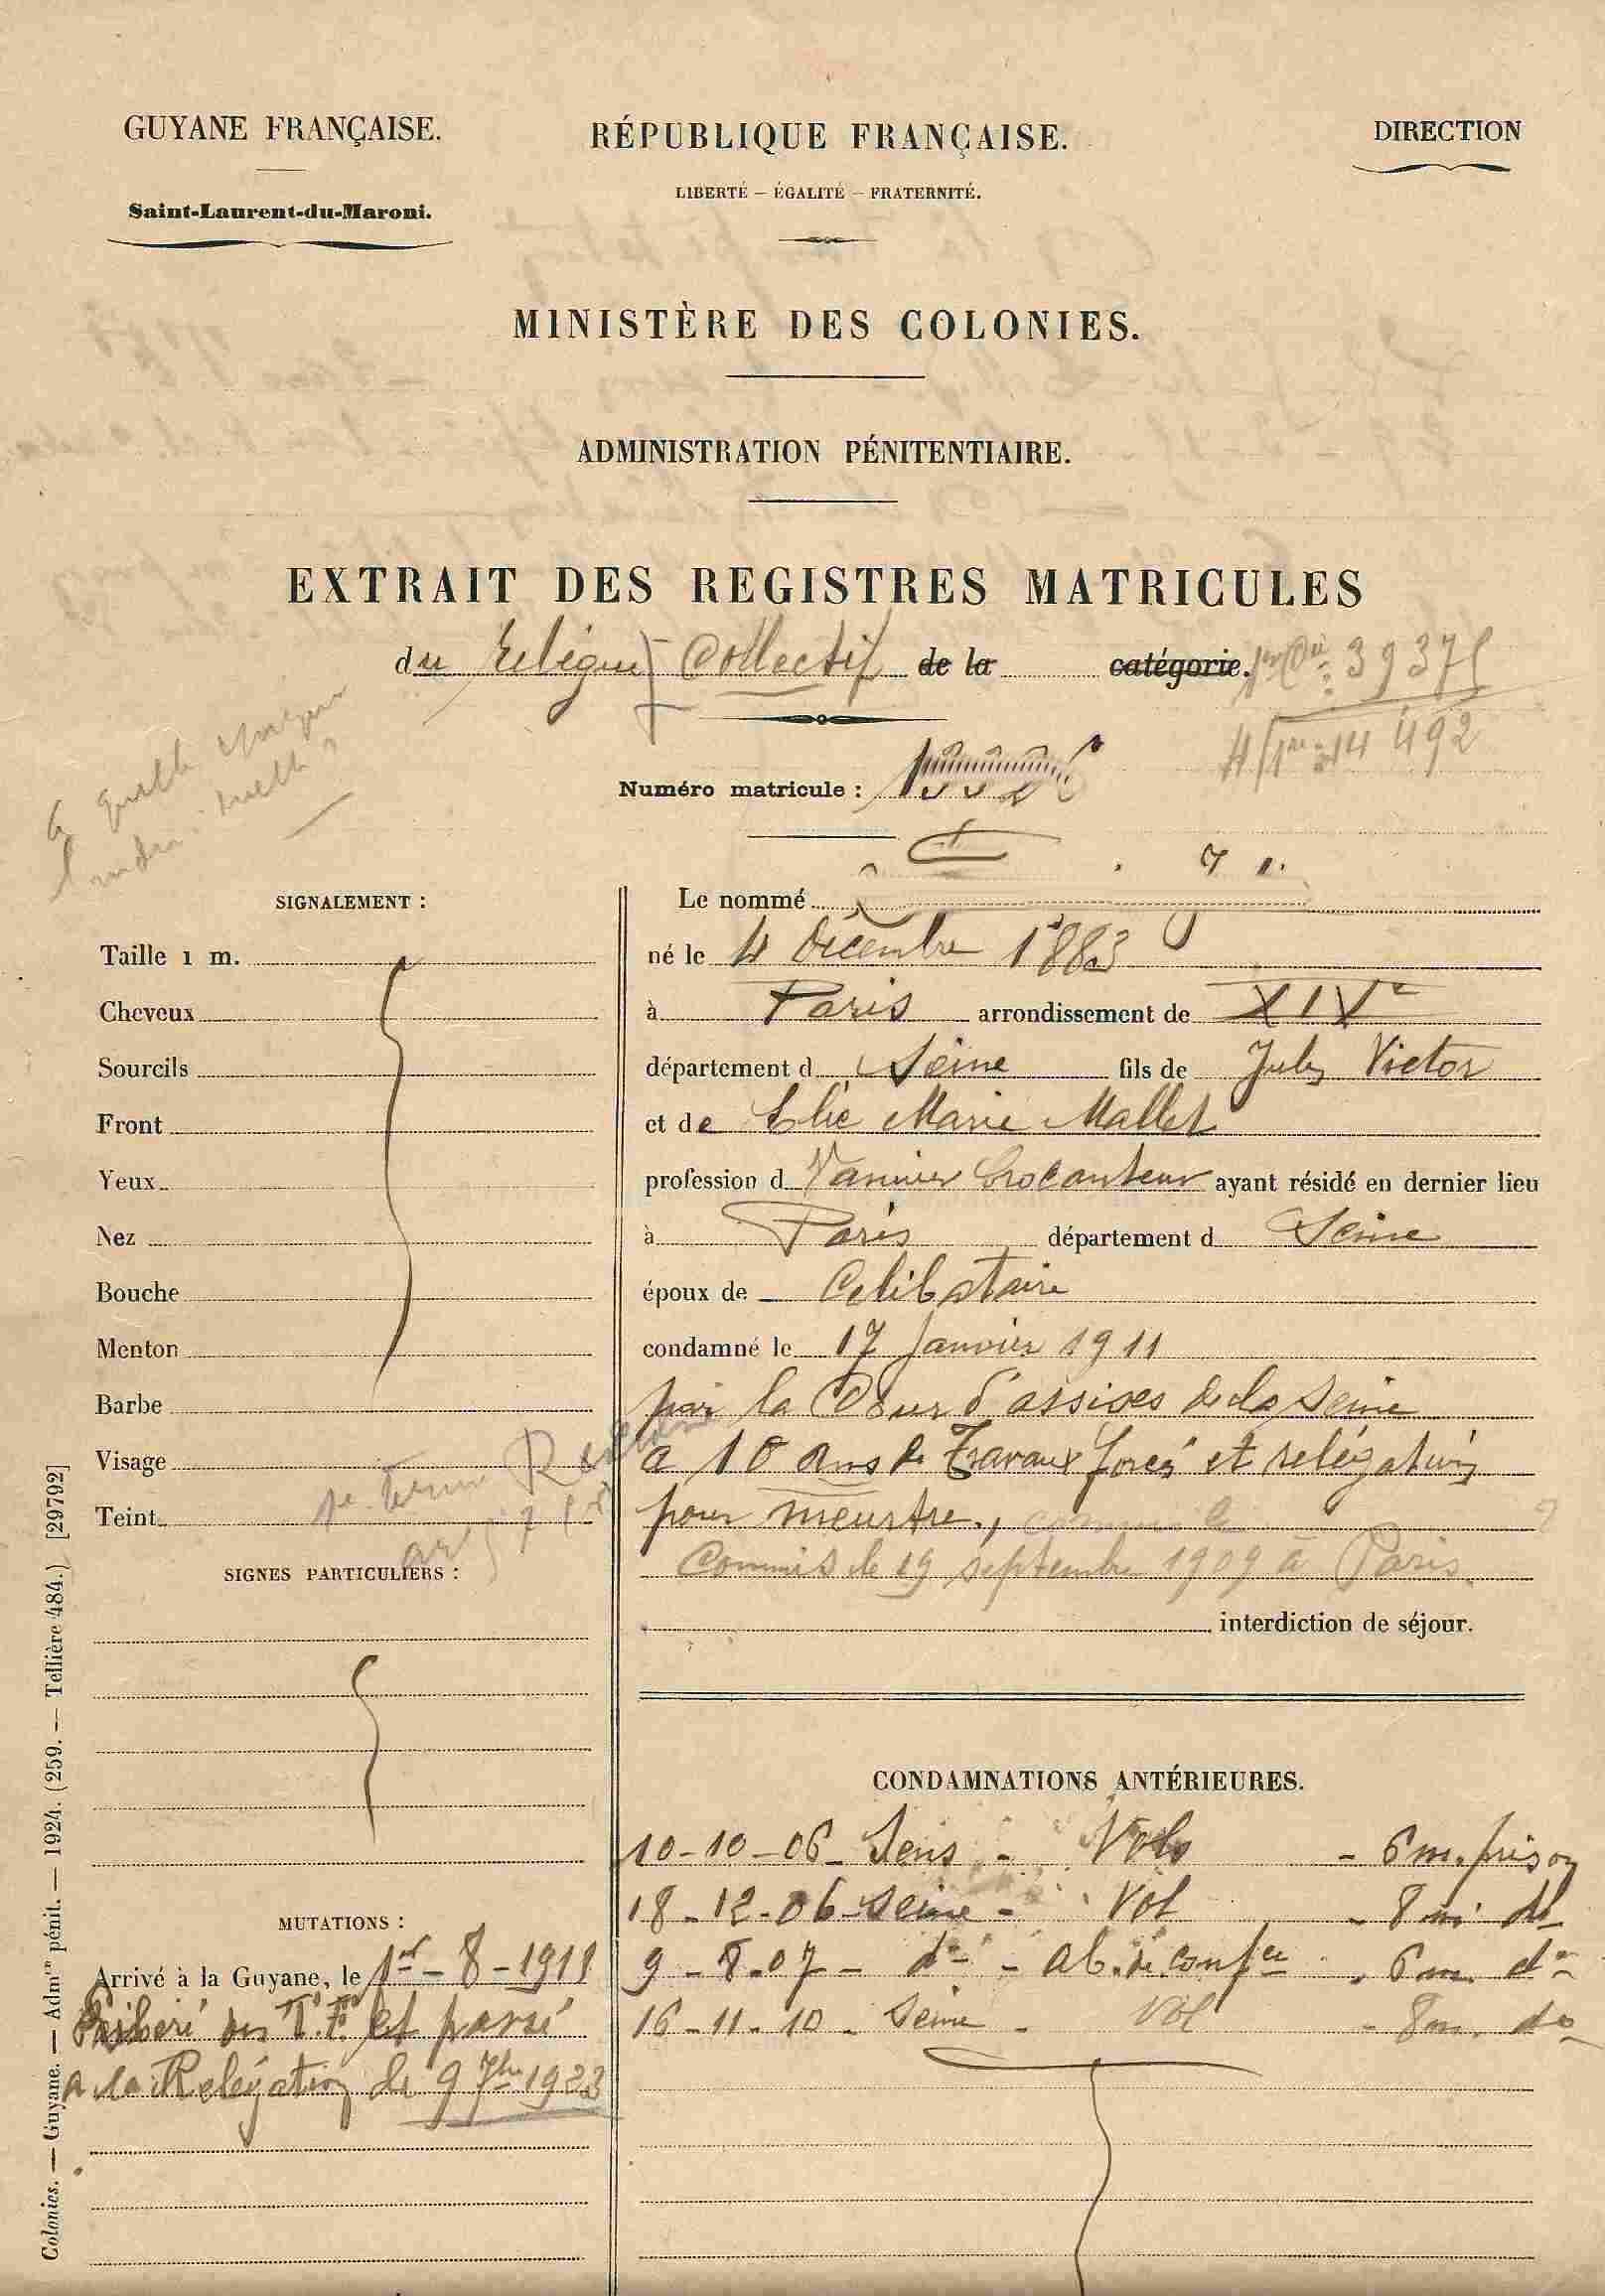 GUYANE FRANÇAISE.
Saint-Laurent-du-Maroni.
RÉPUBLIQUE FRANÇAISE.
LIBERTÉ – ÉGALITÉ – FRATERNITÉ.
DIRECTION
MINISTÈRE DES COLONIES.
ADMINISTRATION PÉNITENTIAIRE.
EXTRAIT DES REGISTRES MATRICULES
du Relégué Collectif de la catégorie.
39375
14 492
Numéro matricule :
SIGNALEMENT :
Taille 1 m.
Cheveux
Sourcils
Front
Yeux
Nez
Bouche
Menton
Barbe
Visage
Teint
SIGNES PARTICULIERS :
MUTATIONS :
Arrivé à la Guyane, le 1er - 8 - 1911
Libéré des T.F. et passé
a la Relégation le 9 7bre 1923
Le nommé
né le 4 Décembre 1883
à Paris arrondissement de XIVe
département d Seine fils de Jules Victor
et de Marie Mallet
profession d Vannier brocanteur ayant résidé en dernier lieu
à Paris département d Seine
époux de Celibataire
condamné le 17 Janvier 1911
par la Cour d'assises de la Seine
a 10 ans de Travaux forcés et relégation
pour meurtre.,
Commis le 19 septembre 1909 à Paris.
interdiction de séjour.
CONDAMNATIONS ANTÉRIEURES.
10-10-06- Sens - Vols - 6 m. prison
18-12-06- Seine - Vol - 8 m. do
9-8-07 - do - ab. de confce - 6 m. do
16-11-10 - Seine - Vol - 8 m. do
Colonies. — Guyane. — Admon pénit. — 1924. (259. — Tellière 484.) [29792]